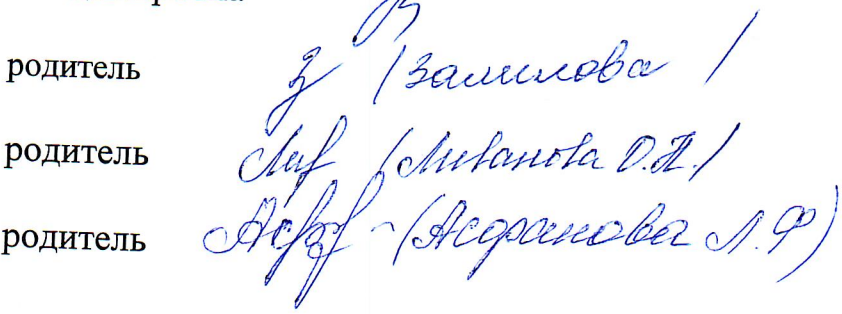 родитель З /Залилова/
родитель Лив /Ливанова О.П./
родитель (Асфанова Л.Ф)